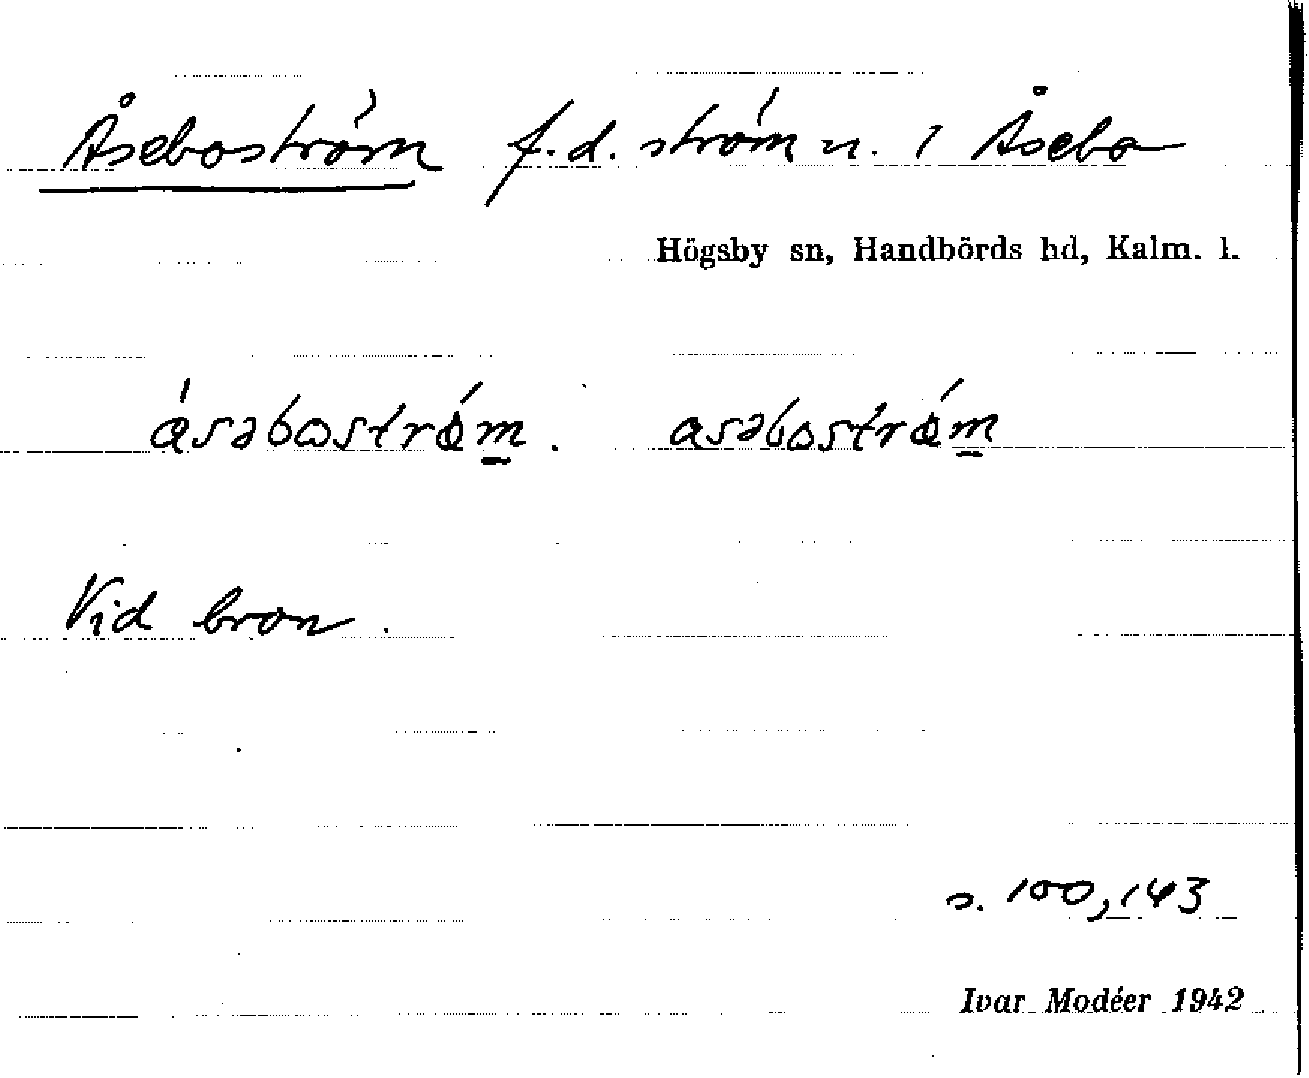 Åseboström f.d. ström n. 1 Åsebo
Högsby sn, Handbörds hd, Kalm. l.
Vid bron.
s. 100, 143
Ivar Modéer 1942